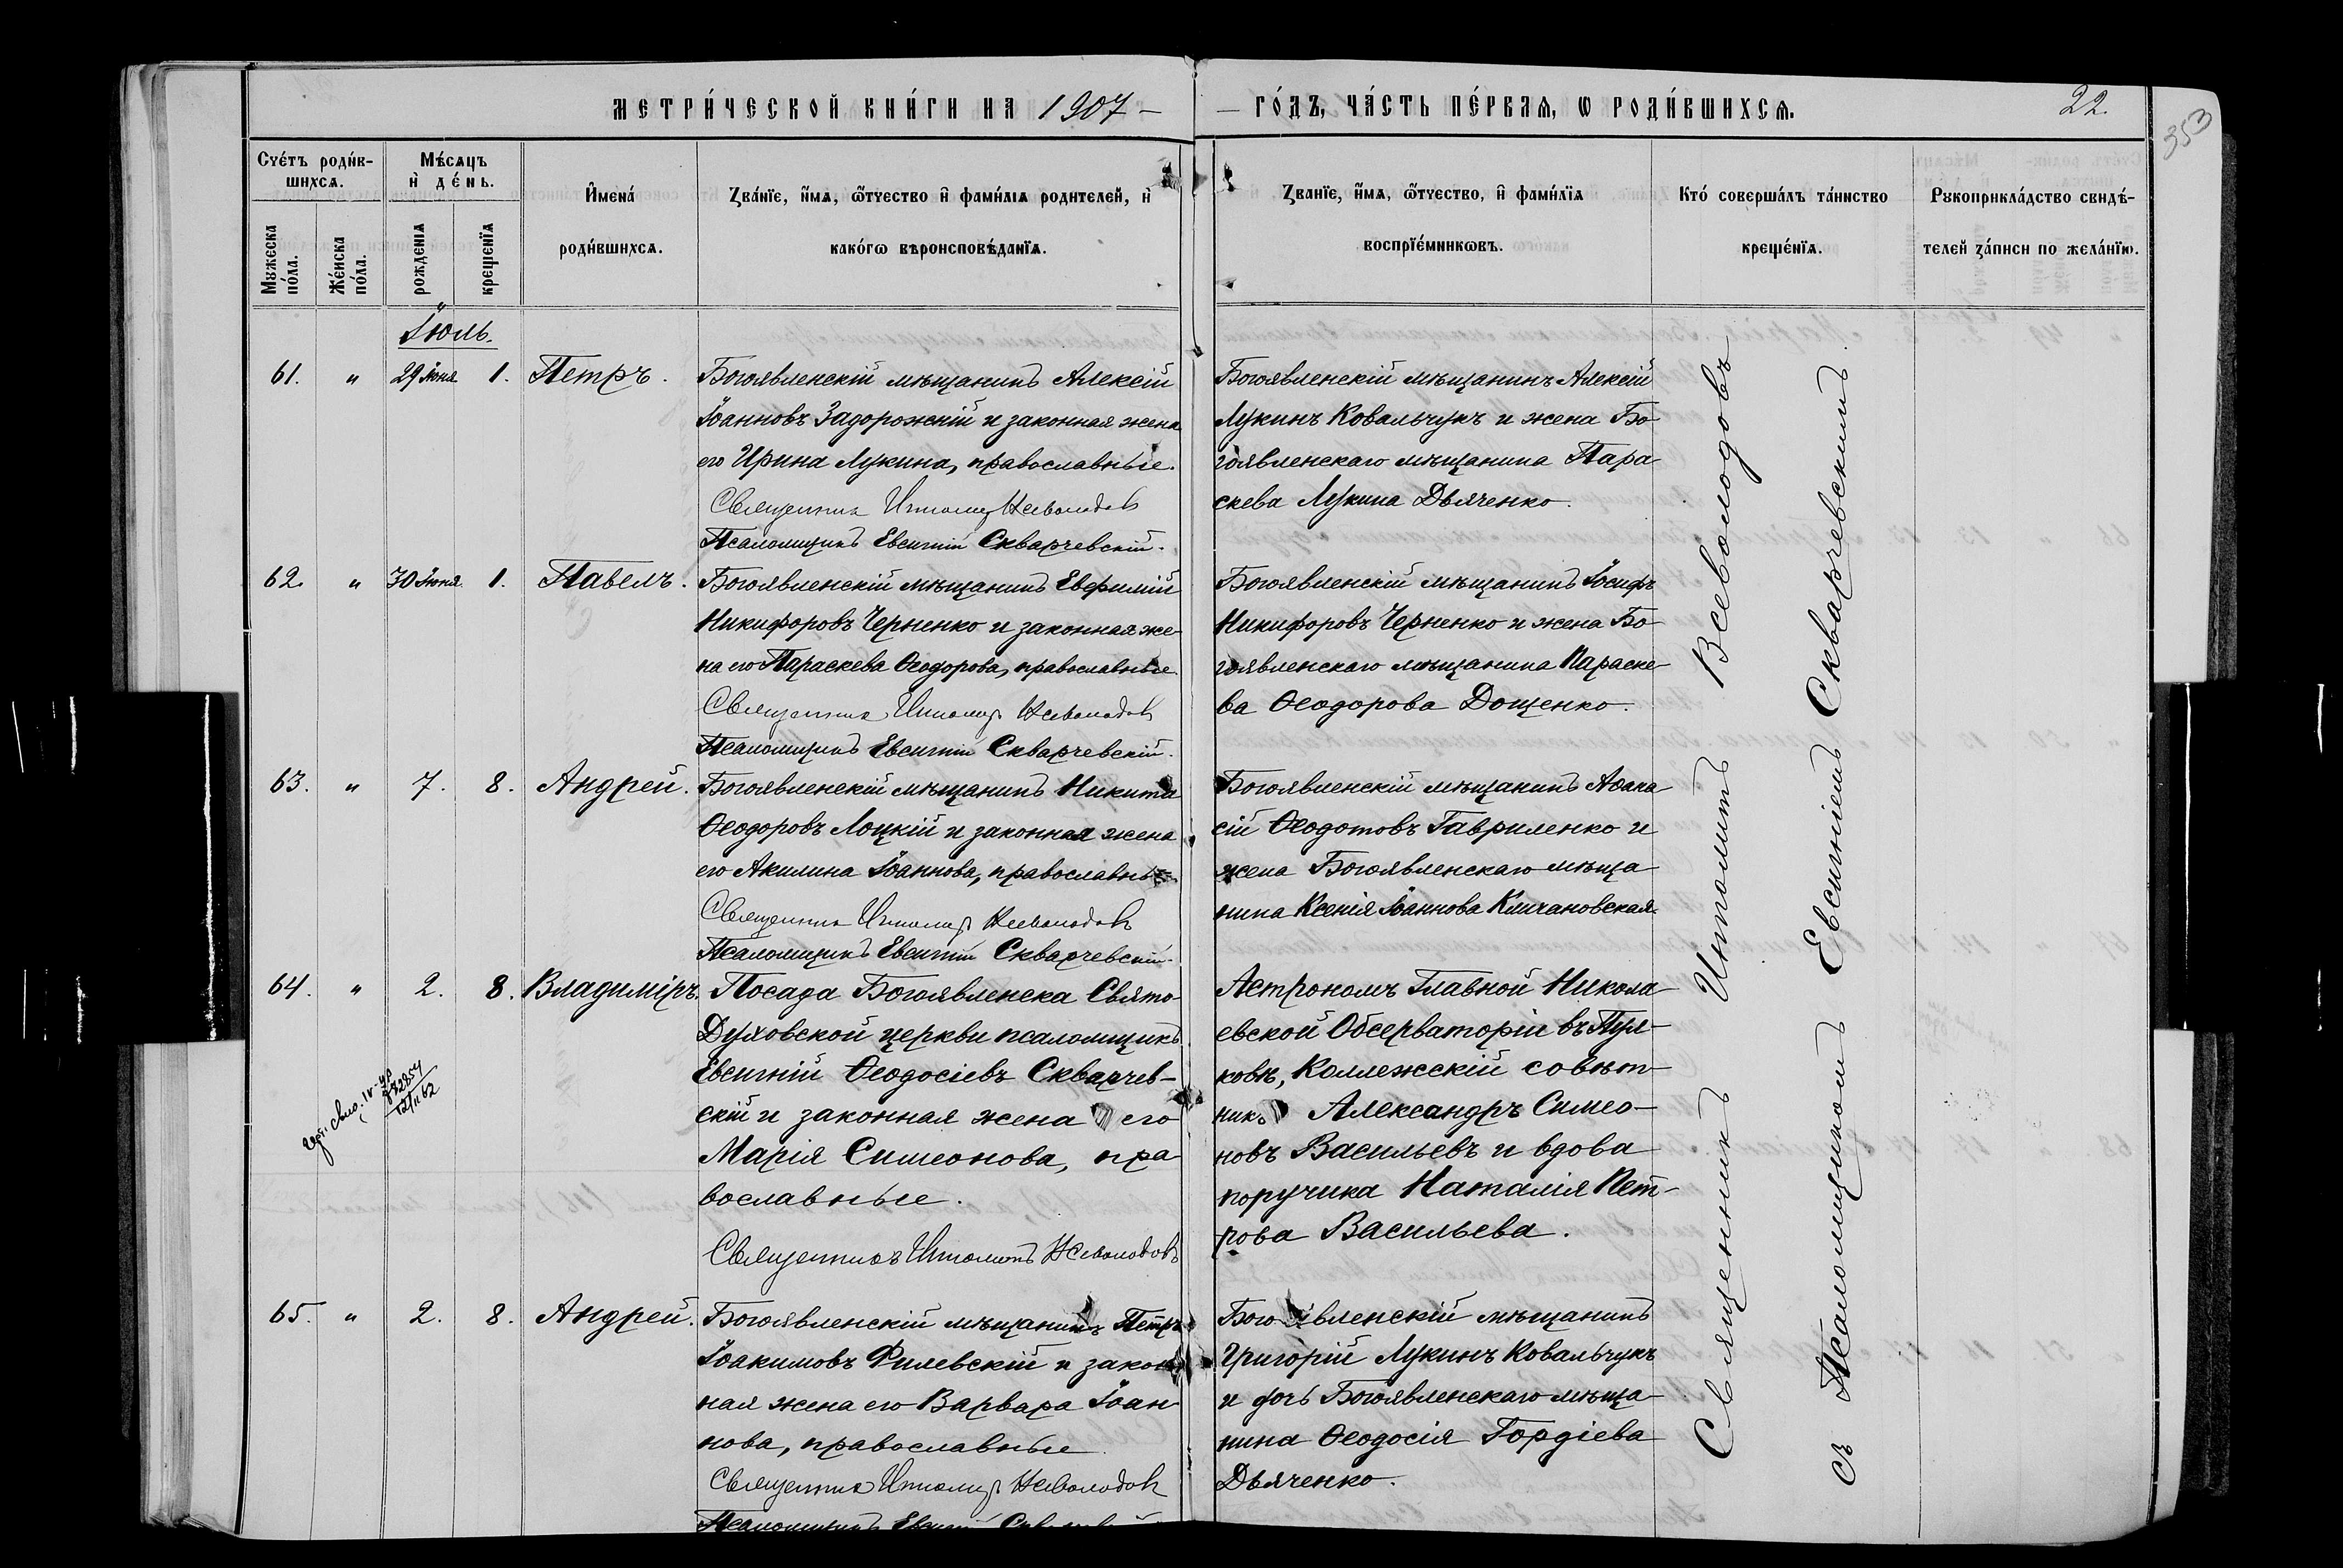 МЕТРИ́ЧЕСКОЙ КНИ́ГИ НА 1907 —
— ГО́ДЪ, ЧА́СТЬ ПЕ́РВАѦ, Ѡ РОДИ́ВШИХСѦ.
22.
353
Счéтъ роди́вшихсѧ.
Мужеска по́ла.
Же́нска по́ла.
Мѣ́сѧцъ и҆ де́нь.
рожденїѧ
крещенїѧ
И҆мена́ роди́вшихсѧ.
Зва́нїе, и҆́мѧ, ѻ҆́тчество и҆ фами́лїѧ родителей, и҆
како́гѡ вѣроисповѣ́данїѧ.
Зва́нїе, и҆́мѧ, ѻ҆́тчество, и҆ фами́лїѧ
воспрїе́мникѡвъ.
Кто́ соверша́лъ та́инство
креще́нїѧ.
Рукоприкла́дство свидѣ́-
телей за́писи по жела́нїю.
Іюль.
61. " 29 Іюня. 1. Петръ.
Богоявленскій мѣщанинъ Алексій
Іоанновъ Задорожній и законная жена
его Ирина Лукина, православные.
Священникъ Ипполитъ Всеволодовъ
Псаломщикъ Евсигній Скварчевскій.
Богоявленскій мѣщанинъ Алексій
Лукинъ Ковальчукъ и жена Бо-
гоявленскаго мѣщанина Пара-
скева Лукина Дьяченко.
62. " 30 Іюня. 1. Павелъ.
Богоявленскій мѣщанинъ Евфимій
Никифоровъ Черненко и законная же-
на его Параскева Ѳеодорова, православные
Священникъ Ипполитъ Всеволодовъ
Псаломщикъ Евсигній Скварчевскій.
Богоявленскій мѣщанинъ Іосифъ
Никифоровъ Черненко и жена Бо-
гоявленскаго мѣщанина Параске-
ва Ѳеодорова Дощенко.
63. " 7. 8. Андрей.
Богоявленскій мѣщанинъ Никита
Ѳеодоровъ Лоцкій и законная жена
его Акилина Іоаннова, православные
Священникъ Ипполитъ Всеволодовъ
Псаломщикъ Евсигній Скварчевскій.
Богоявленскій мѣщанинъ Аѳана-
сій Ѳеодотовъ Гавриленко и
жена Богоявленскаго мѣща-
нина Ксенія Іоаннова Кличановская.
64. " 2. 8. Владиміръ.
Посада Богоявленска Свято-
Духовской церкви псаломщикъ
Евсигній Ѳеодосіевъ Скварчев-
скій и законная жена его
Марія Симеонова, пра-
вославные.
Священникъ Ипполитъ Всеволодовъ
Астрономъ Главной Никола-
евской Обсерваторіи въ Пул-
ковѣ, Коллежскій совѣт-
никъ Александръ Симео-
новъ Васильевъ и вдова
поручика Наталія Пет-
рова Васильева.
65. " 2. 8. Андрей.
Богоявленскій мѣщанинъ Петръ
Іоакимовъ Филевскій и закон-
ная жена его Варвара Іоан-
нова, православные
Священникъ Ипполитъ Всеволодовъ
Псаломщикъ Евсигній Скварчевскій
Богоявленскій мѣщанинъ
Григорій Лукинъ Ковальчукъ
и дочь Богоявленскаго мѣща-
нина Ѳеодосія Гордіева
Дьяченко.
Священникъ Ипполитъ Всеволодовъ
съ Псаломщикомъ Евсигніемъ Скварчевскимъ.